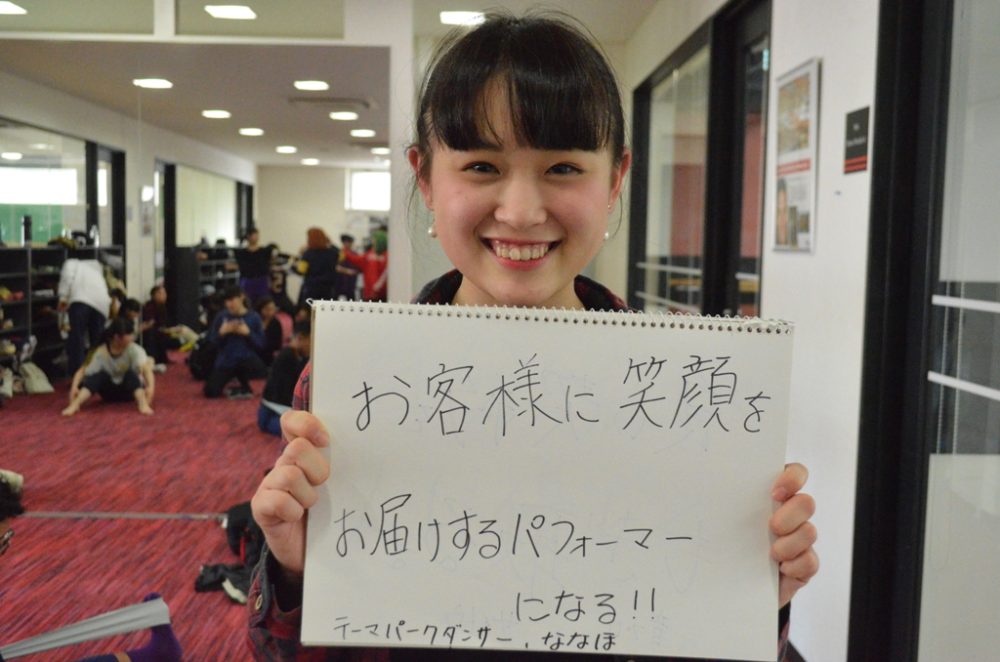 お客様に笑顔を
お届けするパフォーマー
になる!!
テーマパークダンサー、ななほ